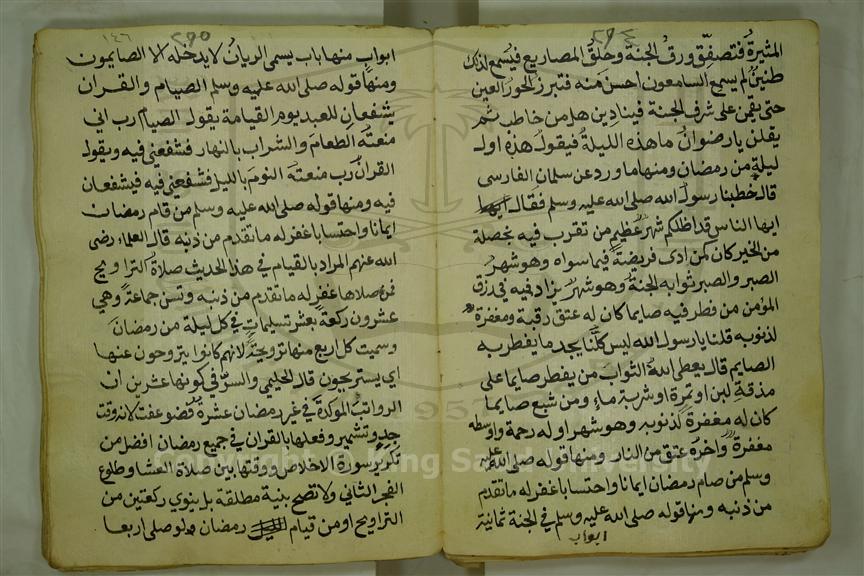 المثيرة فتصفق ورق الجنة وحلق المصاريع فيسمع لذلك
طنين لم يسمع السامعون احسن منه فتبرز الحور العين
حتى يقمن على شرف الجنة فينادين هل من خاطب ثم
يقلن يارضوان ما هذه الليلة فيقول هذه اول
ليلة من رمضان ومنها ما ورد عن سلمان الفارسى
قال خطبنا رسول الله صلى الله عليه وسلم فقال ايها
ايها الناس قد اظلكم شهر عظيم من تقرب فيه بخصلة
من الخير كان كمن ادى فريضة فيما سواه وهو شهر
الصبر والصبر ثوابه الجنة وهو شهر يزاد فيه فى رزق
المؤمن من فطر فيه صايما كان له عتق رقبة ومغفرة
لذنوبه قلنا يا رسول الله ليس كلنا يجد ما يفطر به
الصايم قال يعطى الله الثواب من يفطر صايما على
مذقة لبن او تمرة او شربة ماء ومن شبع صايما
كان له مغفرة لذنوبه وهو شهر اوله رحمة واوسطه
مغفرة واخره عتق من النار ومنها قوله صلى الله عليه
وسلم من صام رمضان ايمانا واحتسابا غفر له ما تقدم
من ذنبه ومنها قوله صلى الله عليه وسلم في الجنة ثمانية
ابواب
١٤٦
ابواب منها باب يسمى الريان لا يدخله الا الصايمون
ومنها قوله صلى الله عليه وسلم الصيام والقران
يشفعان للعبد يوم القيامة يقول الصيام رب انى
منعته الطعام والشراب بالنهار فشفعنى فيه ويقول
القران رب منعته النوم بالليل فشفعنى فيه فيشفعان
فيه ومنها قوله صلى الله عليه وسلم من قام رمضان
ايمانا واحتسابا غفر له ما تقدم من ذنبه قال العلماء رضى
الله عنهم المراد بالقيام في هذا الحديث صلاة التراويح
فمن صلاها غفر له ما تقدم من ذنبه وتسن جماعة وهي
عشرون ركعة بعشر تسليمات في كل ليلة من رمضان
وسميت كل اربع منها ترويحة لانهم كانوا يتروحون عنها
اى يستريحون قال الحليمى والسر في كونها عشرين ان
الرواتب الموكدة في غير رمضان عشرة فضوعفت لانه وقت
جد وتشمير وفعلها بالقران في جميع رمضان افضل من
تكرير سورة الاخلاص ووقتها بين صلاة العشا وطلوع
الفجر الثانى ولا تصح بنية مطلقة بل ينوي ركعتين من
التراويح او من قيام رمضان ولو صلى اربعا
Copyright © King Saud University
1957